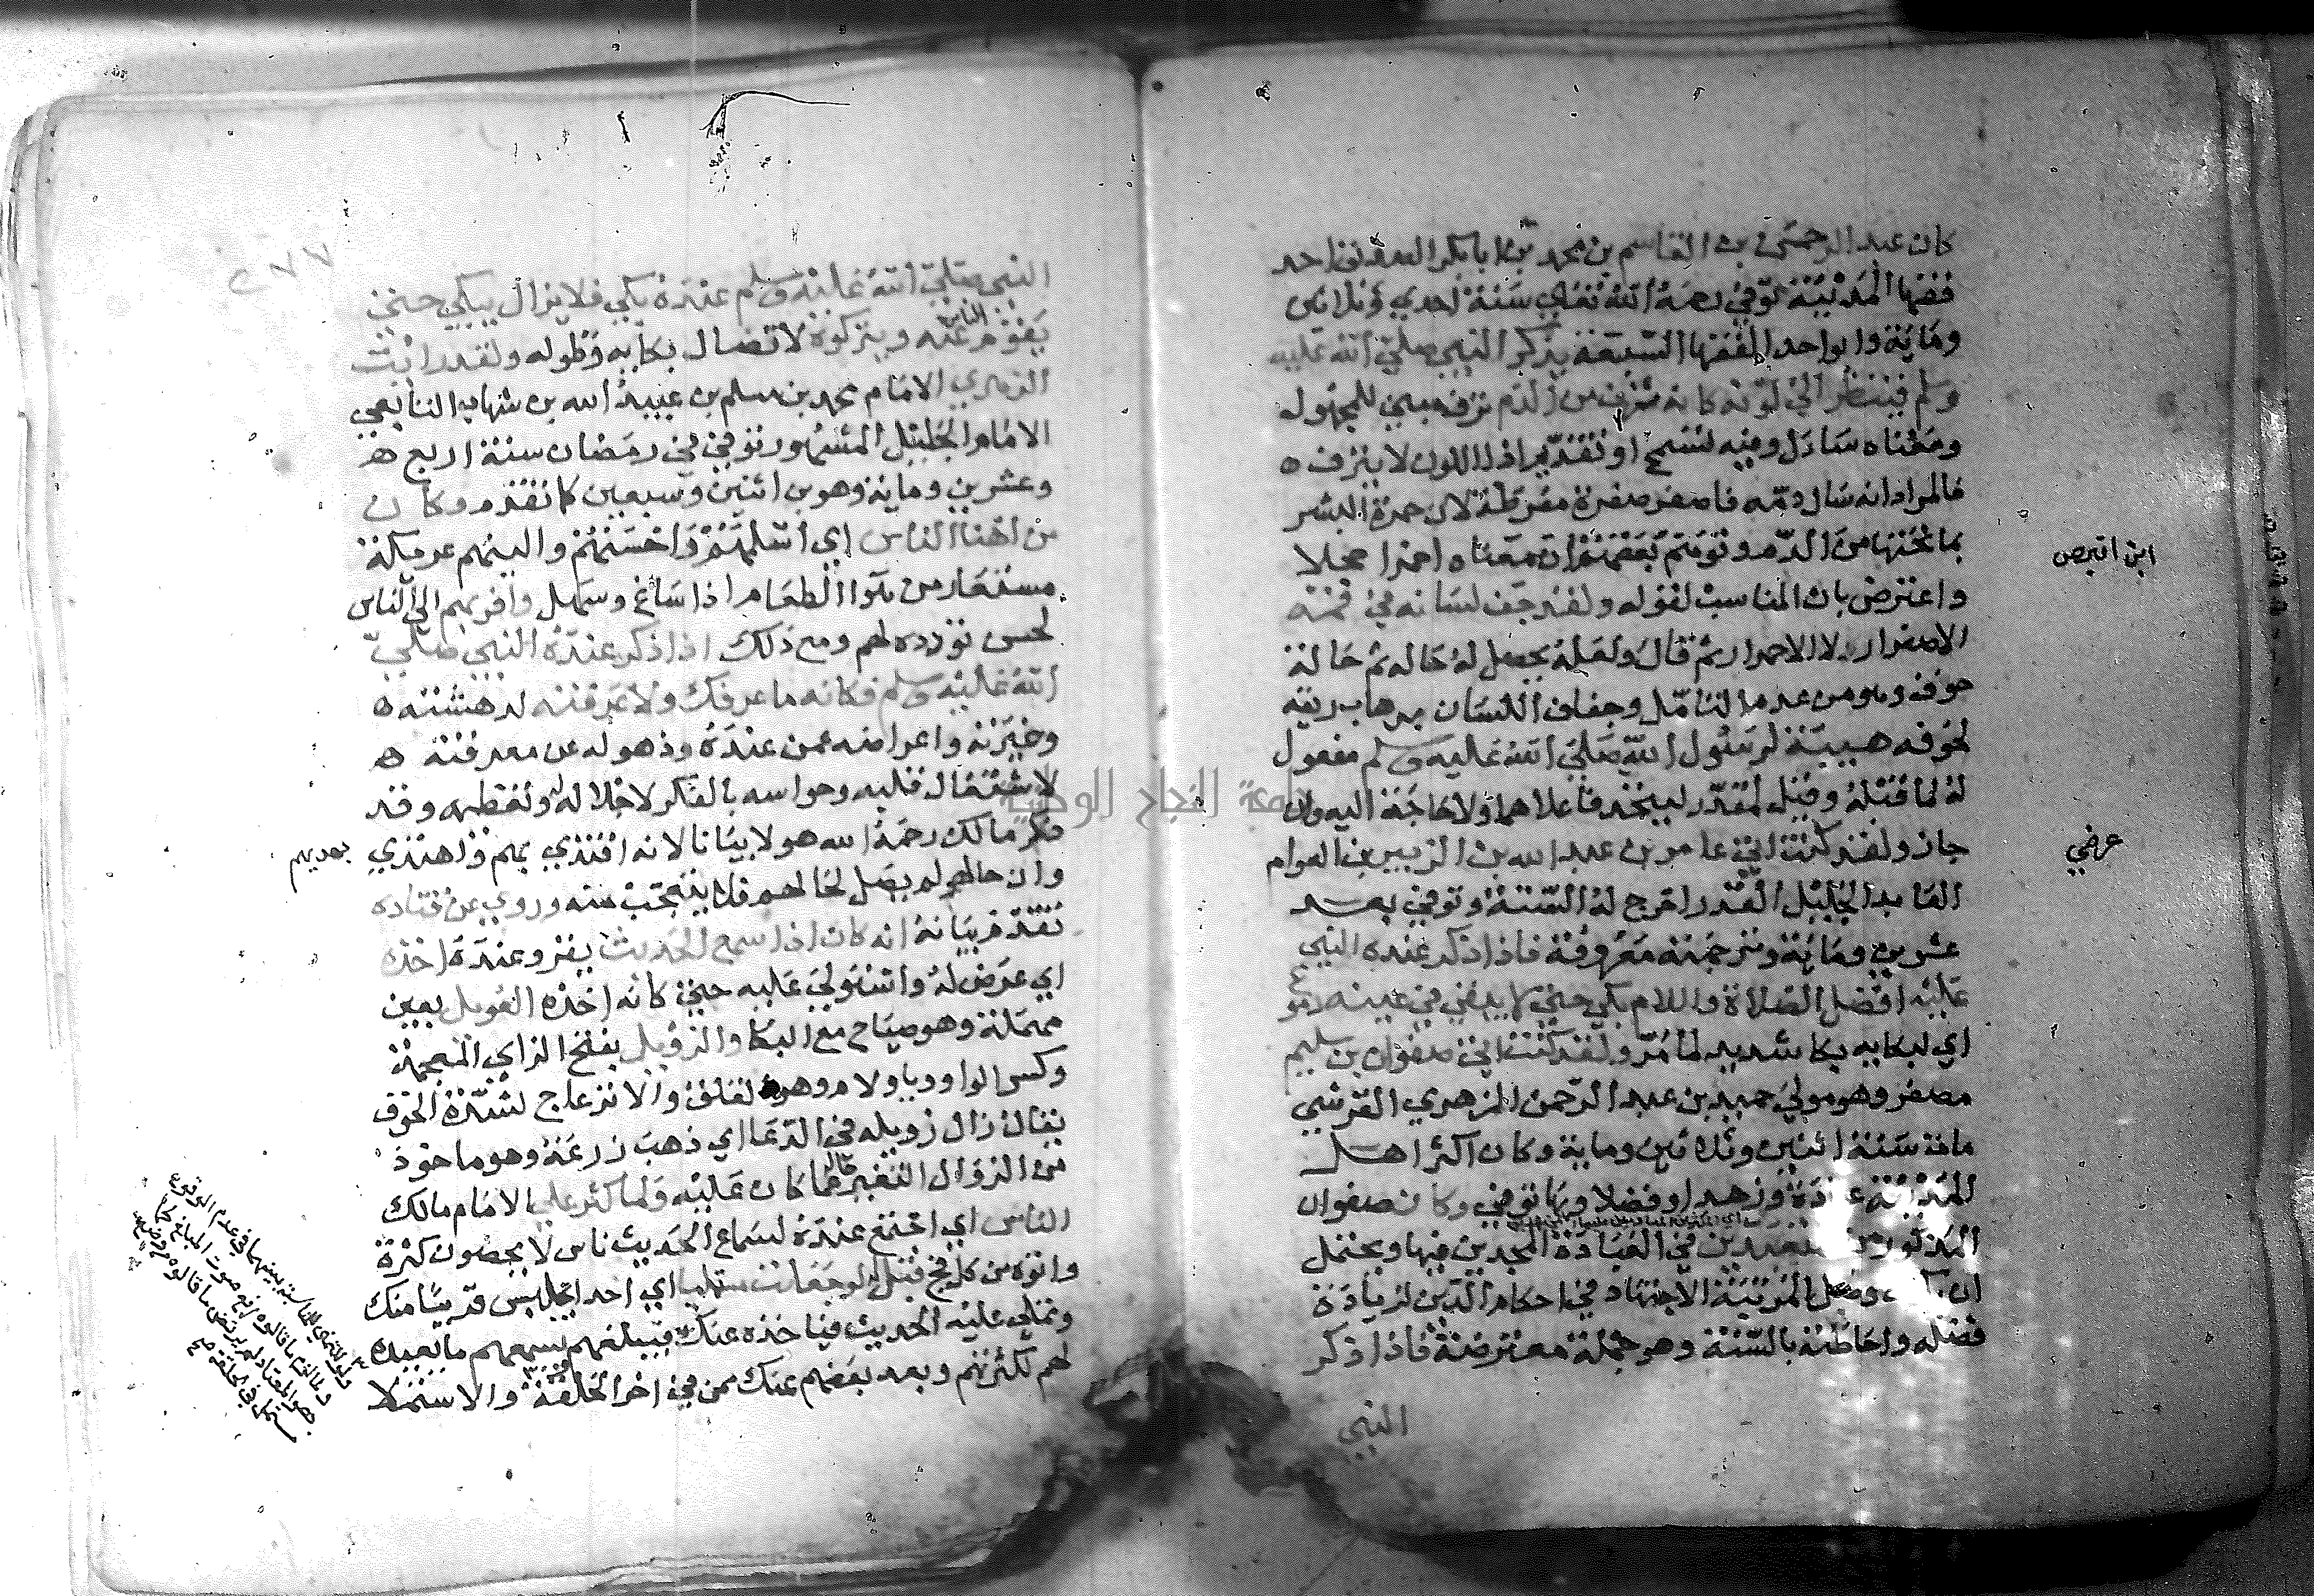 كان عبد الرحمن بن القاسم بن محمد بن ابا بكر الصديق احد
فقها المدينة توفي رحمه الله تعالى سنة احدي وثلاثين
وماية والواحد الفقها السبعة يذكر النبي صلى الله عليه
وسلم فينظر الي لونه كانه نزف من الدم نزف مبني للمجهول
ومعناه سال ومنه لتسمح او تقدير اذ اللون لا ينزف ه
فالمراد انه سال دمه فاصفر صفرة مفرطة لان حمرة البشر
بما تحتها من الدم وتوهم بعضهم ان معناه احمر خجلا
ابن اقبرص
واعترض بان المناسب لقوله ولقد جف لسانه في فمه
الاصفرار لا الاحمرار ثم قال ولعله يحصل له حالة ثم حالة
خوفه وهو من عدم التامل وجفاف اللسان بذهاب ريقه
لخوفه هيبة لرسول الله صلى الله عليه وسلم مفعول
له لما قبله وقيل لمقدر ليتحد فاعلاهما ولا حاجة اليه وان
جاز ولقد كنت اتي عامر بن عبد الله بن الزبير بن العوام
عرضي
العابد الجليل القدر اخرج له الستة وتوفي بعد
عشرين وماية وترجمته معروفة فاذا ذكر عنده النبي
عليه افضل الصلاة والسلام بكي حتى لا يبقي في عينيه دموع
اي لبكايه بكا شديد لما مر ولقد كنت اتي صفوان بن سليم
مصغر وهو مولي حميد بن عبد الرحمن الزهري القرشي
مات سنة اثنين وثلاثين وماية وكان اكثر اهل
المدينة عبادة وزهدا وفضلا وبها توفي وكان صفوان
المذكور من المتعبدين في العبادة المجدين فيها ويحتمل
ان وصل لمرتبة الاجتهاد في احكام الدين لزيادة
فضله واحاطته بالسنة وهو جملة معترضة فاذا ذكر
النبي
٢٧٧
النبي صلى الله عليه وسلم عنده بكي فلا يزال يبكي حتى
يقوم الناس عنه ويتركوه لاتصال بكايه وطوله ولقد رايت
الزهري الامام محمد بن مسلم بن عبيد الله بن شهاب التابعي
الامام الجليل المشهور توفي في رمضان سنة اربع ه
وعشرين وماية وهو بن اثنين وسبعين كما تقدم وكان
من اهنا الناس اي اسلمهم واحسنهم والينهم عريكة
مستعار من هنوا الطعام اذا ساغ وسهل واقربهم الى الناس
لحسن تودده لهم ومع ذلك اذا ذكر عنده النبي صلى
الله عليه وسلم فكانه ما عرفك ولا عرفته لدهشته ه
وحيرته واعراضه عمن عنده وذهوله عن معرفته ه
لاشتغال قلبه وحواسه بالفكر لاجلاله وتعظيمه وقد
ذكر مالك رحمه الله هولا بيانا لانه اقتدي بهم واهتدي بهديهم
وان حالهم لم يصل لحالهم فلا يتعجب منه وروي عن قتادة
تقدم بيانه انه كان اذا سمع الحديث يقرو عنده اخذه
اي عرض له واستولي عليه حتى كانه اخذه العويل بعين
مهملة وهو صياح مع البكا والزويل بفتح الزاي المعجمة
وكسر الواو ويا ولام وهو القلق والانزعاج لشدة الخوف
يقال زال زويله في الدعا اي ذهب ذرعه وهو ماخوذ
من الزوال التغير قال عما كان عليه ولما كثر علي الامام مالك
الناس اي اجتمع عنده لسماع الحديث ناس لا يحصون كثرة
واتوه من كل فج قيل له لو جعلت مستمليا اي احد ايجلس قريبا منك
وتملي عليه الحديث فياخذه عنك فيبلغهم يسمعهم ما يعيبك
لهم لكثرتهم وبعد بعضهم عنك ممن في اخر الحلقة والاستملا